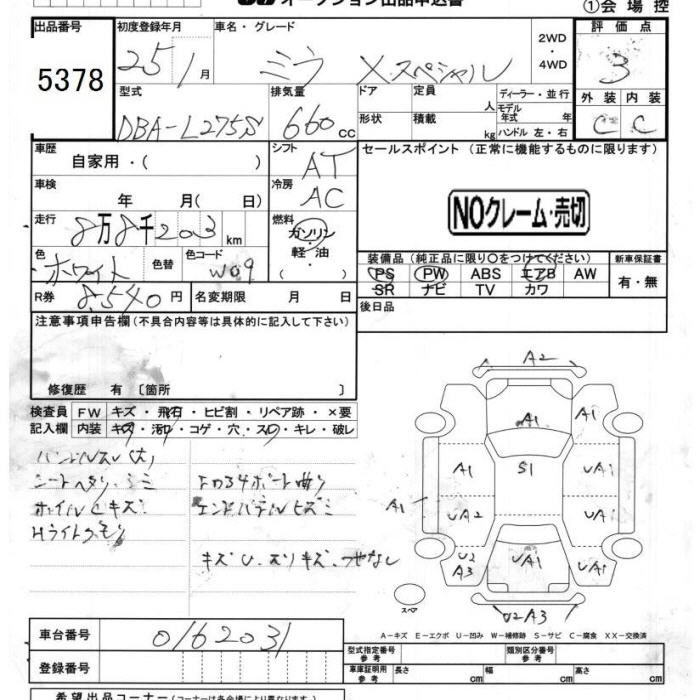 オークション出品申込書
①会場控
出品番号
5378
初度登録年月
25 1月
車名・グレード
ミラ Xスペシャル
2WD
・
4WD
評価点
3
型式
DBA-L275S
排気量
660 CC
ドア
形状
定員
人
積載
kg
ディーラー・並行
モデル年式 年
ハンドル 左・右
外装 内装
C C
車歴
自家用・( )
シフト
AT
車検
年 月( 日)
冷房
AC
走行
8万8千203 km
燃料
ガソリン
軽油
( ・ )
色
ホワイト
色替
色コード
W09
R券
8.540円
名変期限 月 日
セールスポイント(正常に機能するものに限ります)
NOクレーム・売切
装備品(純正品に限り○をつけてください)
新車保証書
PS PW ABS エアB AW
SR ナビ TV カワ
有・無
後日品
注意事項申告欄(不具合内容等は具体的に記入して下さい)
修復歴 有〔箇所 〕
検査員
記入欄
FW キズ・飛石・ヒビ割・リペア跡・×要
内装 キズ・汚れ・コゲ・穴・スレ・キレ・破レ
ハンドルスレ(大)
シートヘタリ、シミ
ホイルCキズ
Hライトクモリ
エンドパネルヒズミ
キズU
A2
A1
A1
A1
S1
UA1
A1
UA2
UA1
U2
A3
UA1
UA1
U2A3
スペア
A-キズ E-エクボ U-凹み W-補修跡 S-サビ C-腐食 XX-交換済
車台番号
0162031
登録番号
型式指定番号
参考
類別区分番号
参考
車庫証明用
参考
長さ cm
幅 cm
高さ cm
希望出品コーナー(コーナーは各会場により異なります。)